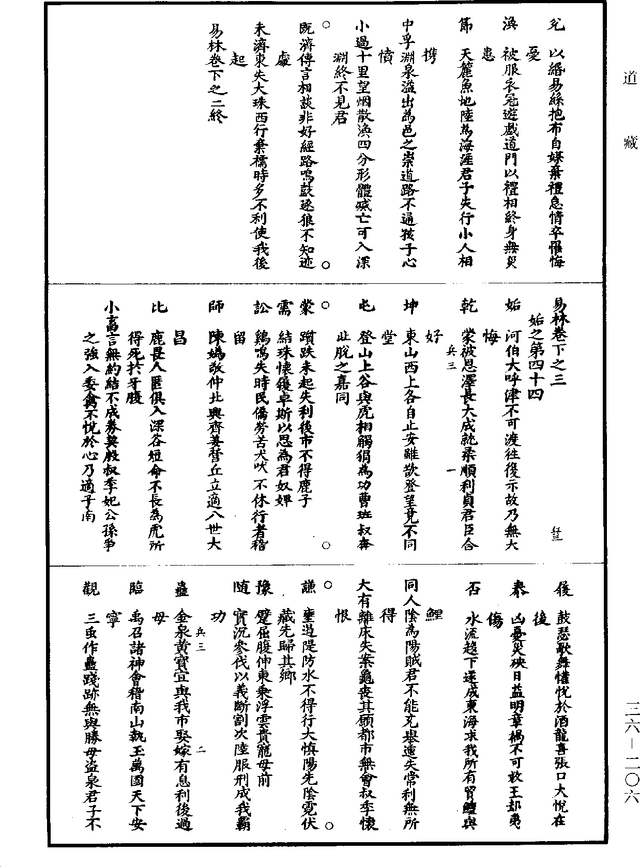 道藏
兌　以緡易絲抱布自媒棄禮急情卒罹悔
憂
渙　被服衣冠遊戲道門以禮相終身無災
患
節　天麓魚地陸為海涯君子失行小人相
攜
中孚淵泉溢出為邑之崇道路不通孩子心
憒
小過十里望烟散渙四分形體滅亡可入深
淵終不見君
既濟傳言相談非好經路鳴鼓逐狼不知迹
處
未濟東失大珠西行棄橘時多不利使我後
起
易林卷下之二終
易林卷下之三
姤之第四十四
姤　河伯大呼津不可渡往復示故乃無大
悔
乾　蒙被恩澤長大成就柔順利貞君臣合
好
兵三　一
坤　東山西上各自止安雖欲登望竟不同
堂
屯　登山上谷與虎相觸猬為功曹班叔奔
此脫之嘉同
蒙　躓跌未起失利後市不得鹿子
需　結珠懷履卓斯以思為君奴婢
訟　鷄鳴失時民僑勞苦犬吠不休行者稽
留
師　陳媯敬仲北興齊姜營丘立適八世大
昌
比　鹿畏人匿俱入深谷短命不長為虎所
得死於牙腹
小畜言無約結不成券契殷叔季妃公孫爭
之強入委禽不悅於心乃適子南
履　鼓瑟歌舞懽悅於酒龍喜張口大悅在
後
泰　凶憂災殃日益明章禍不可救王郤夷
傷
否　水流趨下遂成東海求我所有買鱣與
鯉
同人陰為陽賊君不能克舉遠失常利無所
得
大有離床失案龜喪其願都市無會叔季懷
恨
謙　壅遏隄防水不得行大慎陽先陰霓伏
藏先歸其鄉
豫　躄屈腹伸東乘浮雲貴寵毋前
隨　實沉參伐以義斷割次陸服刑成我霸
功
兵三　二
蠱　金泉黃寶宜與我市娶嫁有息利後過
母
臨　禹召諸神會稽南山執玉萬國天下安
寧
觀　三虫作蠱踐跡無與勝母盜泉君子不
三六—二〇六